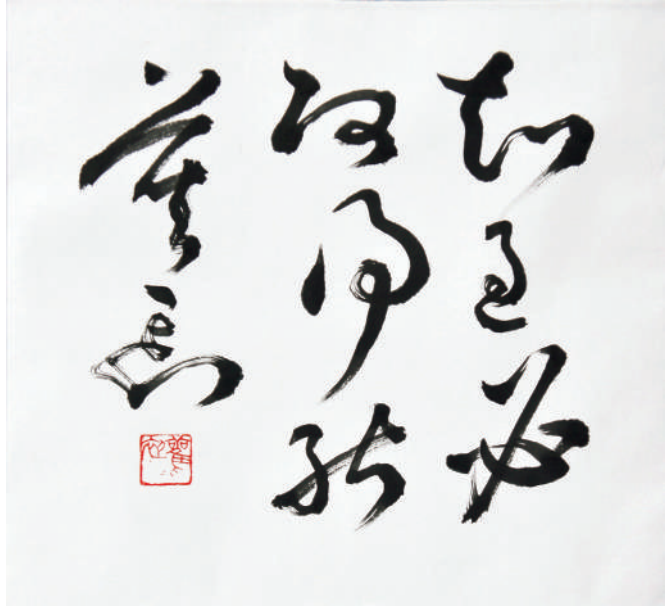 知过必
改得能
莫忘